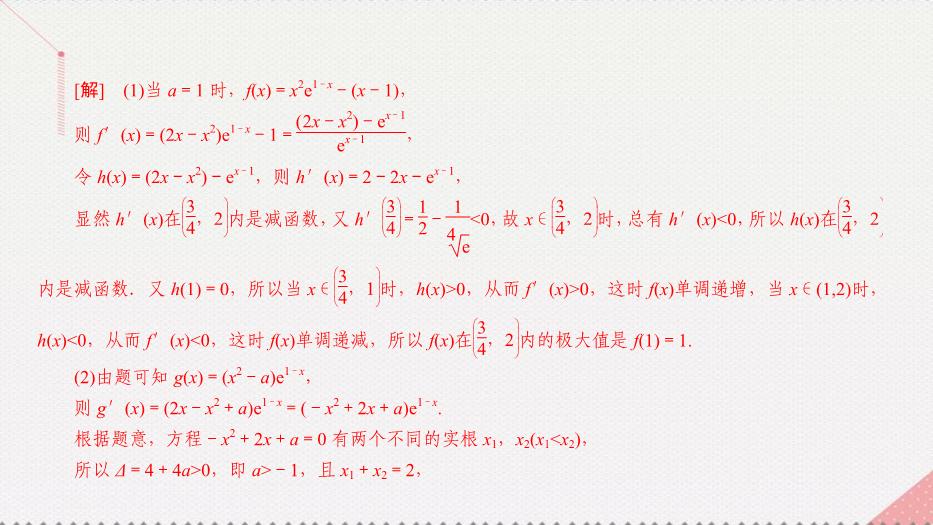 [解] (1)当 a=1 时，f(x)=x²e¹⁻ˣ-(x-1)，
则 f′(x)=(2x-x²)e¹⁻ˣ-1=\frac{(2x-x²)-eˣ⁻¹}{eˣ⁻¹}，
令 h(x)=(2x-x²)-eˣ⁻¹，则 h′(x)=2-2x-eˣ⁻¹，
显然 h′(x)在(\frac{3}{4}，2)内是减函数，又 h′(\frac{3}{4})=\frac{1}{2}-\frac{1}{\sqrt[4]{e}}<0，故 x∈(\frac{3}{4}，2)时，总有 h′(x)<0，所以 h(x)在(\frac{3}{4}，2)
内是减函数．又 h(1)=0，所以当 x∈(\frac{3}{4}，1)时，h(x)>0，从而 f′(x)>0，这时 f(x)单调递增，当 x∈(1,2)时，
h(x)<0，从而 f′(x)<0，这时 f(x)单调递减，所以 f(x)在(\frac{3}{4}，2)内的极大值是 f(1)=1.
(2)由题可知 g(x)=(x²-a)e¹⁻ˣ，
则 g′(x)=(2x-x²+a)e¹⁻ˣ=(-x²+2x+a)e¹⁻ˣ.
根据题意，方程-x²+2x+a=0 有两个不同的实根 x₁，x₂(x₁<x₂)，
所以 Δ=4+4a>0，即 a>-1，且 x₁+x₂=2，